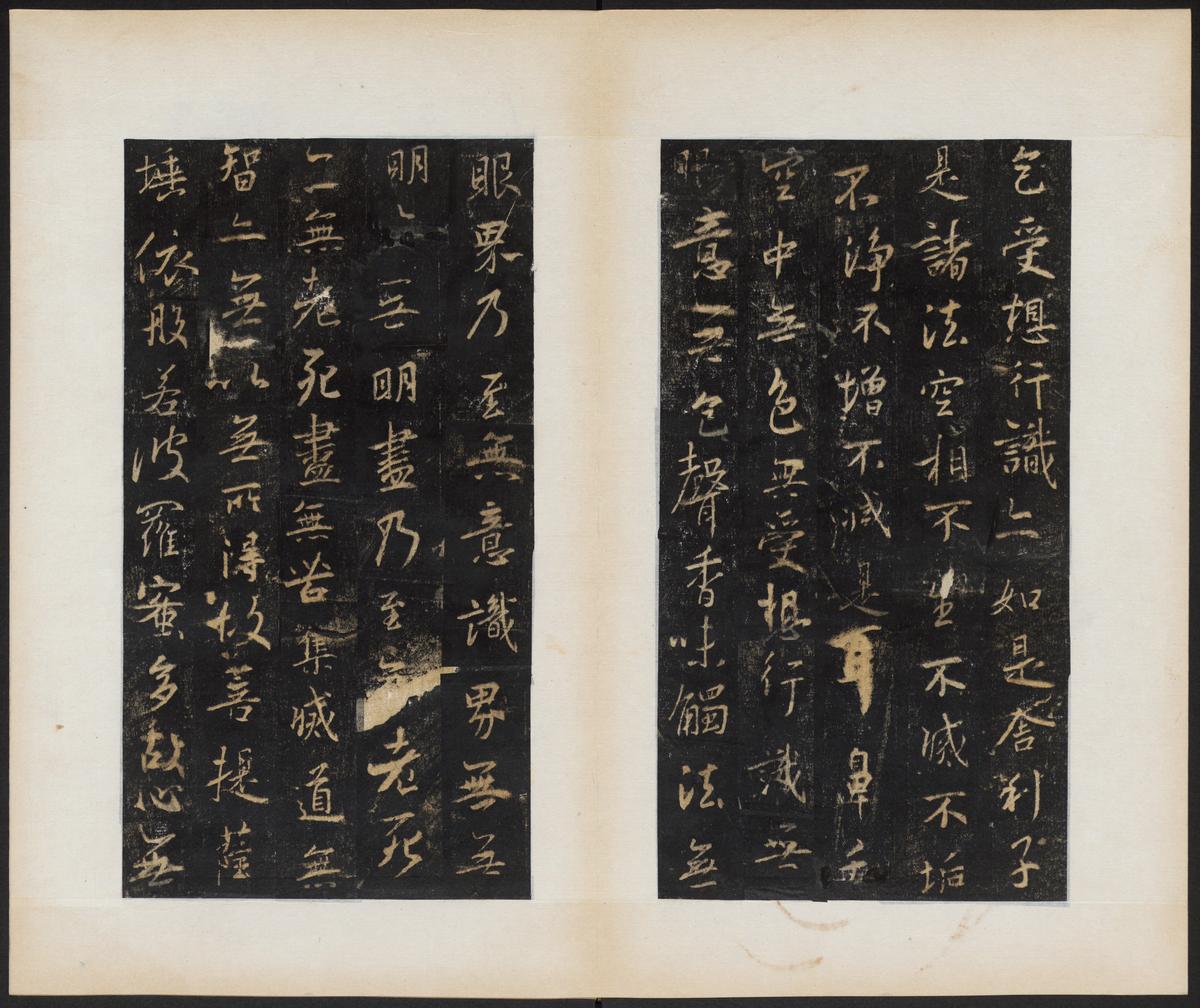 色受想行識亦如是舍利子
是諸法空相不生不滅不垢
不淨不增不減是耳鼻舌
空中無色無受想行識無
眼意無色聲香味觸法無
眼界乃至無意識界無無
明亦無明盡乃至無老死
亦無老死盡無苦集滅道無
智亦無以無所得故菩提薩
埵依般若波羅蜜多故心無